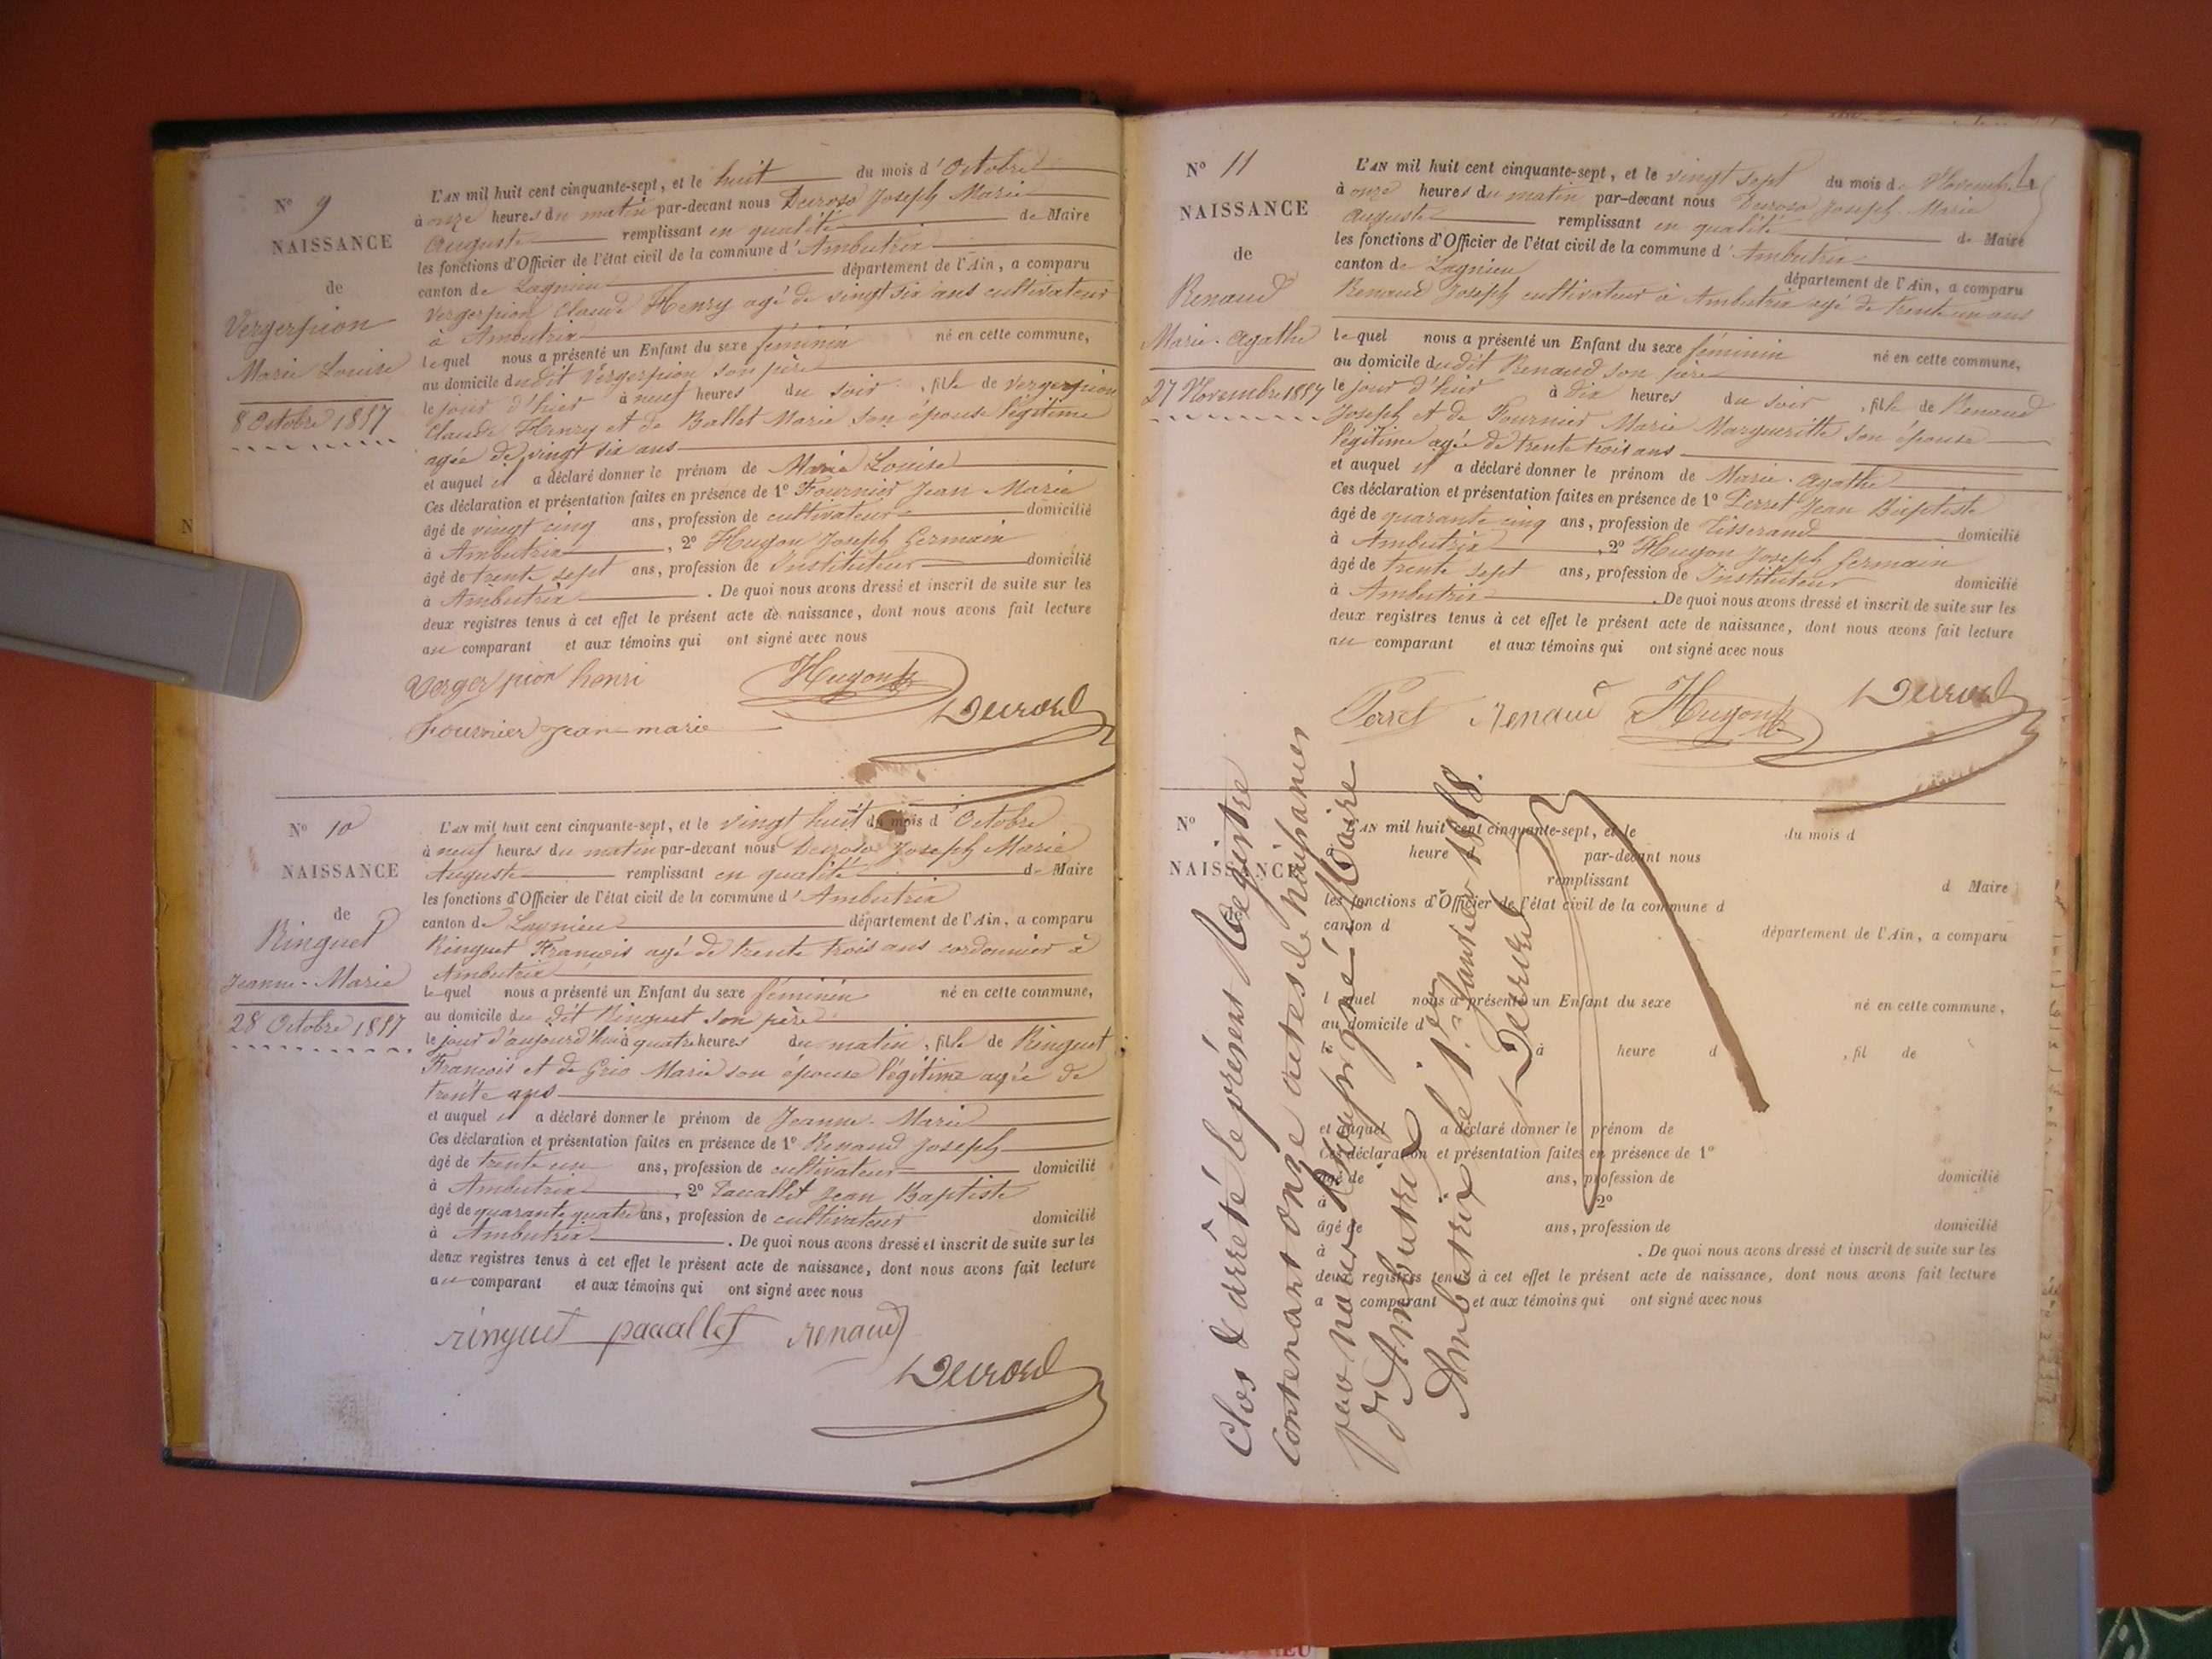 N° 9
NAISSANCE
de
Vergerpion
Marie Louise
8 Octobre 1857
L'AN mil huit cent cinquante-sept, et le huit du mois d'Octobre
à onze heures du matin par-devant nous Joseph Marie
Auguste remplissant en qualité de Maire
les fonctions d'Officier de l'état civil de la commune d'Ambutrix
canton de Lagnieu département de l'Ain, a comparu
Vergerpion Claude Henry agé de vingt six ans cultivateur
à Ambutrix
lequel nous a présenté un Enfant du sexe féminin né en cette commune,
au domicile dudit Vergerpion son père
le jour d'hier à neuf heures du soir, fille de Vergerpion
Claude Henry et de Ballet Marie son épouse légitime
agée de vingt six ans
et auquel il a déclaré donner le prénom de Marie Louise
Ces déclaration et présentation faites en présence de 1° Fournier Jean Marie
âgé de vingt cinq ans, profession de cultivateur domicilié
à Ambutrix, 2° Hugon Joseph Germain
âgé de trente sept ans, profession de Instituteur domicilié
à Ambutrix. De quoi nous avons dressé et inscrit de suite sur les
deux registres tenus à cet effet le présent acte de naissance, dont nous avons fait lecture
au comparant et aux témoins qui ont signé avec nous
Vergerpion henri Hugon
Fournier jean marie
N° 10
NAISSANCE
de
Ringuet
Jeanne-Marie
28 Octobre 1857
L'AN mil huit cent cinquante-sept, et le vingt huit du mois d'Octobre
à neuf heures du matin par-devant nous Joseph Marie
Auguste remplissant en qualité de Maire
les fonctions d'Officier de l'état civil de la commune d'Ambutrix
canton de Lagnieu département de l'Ain, a comparu
Ringuet François agé de trente trois ans cordonnier à
Ambutrix
lequel nous a présenté un Enfant du sexe féminin né en cette commune,
au domicile du dit Ringuet son père
le jour d'aujourd'hui à quatre heures du matin, fille de Ringuet
François et de Grio Marie son épouse légitime agée de
trente ans
et auquel il a déclaré donner le prénom de Jeanne-Marie
Ces déclaration et présentation faites en présence de 1° Renaud Joseph
âgé de trente un ans, profession de cultivateur domicilié
à Ambutrix, 2° Paccallet Jean Baptiste
âgé de quarante quatre ans, profession de cultivateur domicilié
à Ambutrix. De quoi nous avons dressé et inscrit de suite sur les
deux registres tenus à cet effet le présent acte de naissance, dont nous avons fait lecture
au comparant et aux témoins qui ont signé avec nous
ringuet paccallet renaud
N° 11
NAISSANCE
de
Renaud
Marie-Agathe
27 Novembre 1857
L'AN mil huit cent cinquante-sept, et le vingt sept du mois de Novembre
à onze heures du matin par-devant nous Joseph Marie
Auguste remplissant en qualité de Maire
les fonctions d'Officier de l'état civil de la commune d'Ambutrix
canton de Lagnieu département de l'Ain, a comparu
Renaud Joseph cultivateur à Ambutrix agé de trente un ans
lequel nous a présenté un Enfant du sexe féminin né en cette commune,
au domicile dudit Renaud son père
le jour d'hier à dix heures du soir, fille de Renaud
Joseph et de Fournier Marie Margueritte son épouse
légitime agée de trente trois ans
et auquel il a déclaré donner le prénom de Marie-Agathe
Ces déclaration et présentation faites en présence de 1° Perret Jean Baptiste
âgé de quarante cinq ans, profession de Tisserand domicilié
à Ambutrix, 2° Hugon Joseph Germain
âgé de trente sept ans, profession de Instituteur domicilié
à Ambutrix. De quoi nous avons dressé et inscrit de suite sur les
deux registres tenus à cet effet le présent acte de naissance, dont nous avons fait lecture
au comparant et aux témoins qui ont signé avec nous
Perret renaud Hugon
N°
NAISSANCE
L'AN mil huit cent cinquante-sept, et le du mois d
heure par-devant nous
remplissant d Maire
les fonctions d'Officier de l'état civil de la commune d
canton d département de l'Ain, a comparu
l quel nous a présenté un Enfant du sexe né en cette commune,
au domicile d
à heure d , fil de
et auquel a déclaré donner le prénom de
Ces déclaration et présentation faites en présence de 1°
âgé de ans, profession de domicilié
à 2°
âgé de ans, profession de domicilié
à . De quoi nous avons dressé et inscrit de suite sur les
deux registres tenus à cet effet le présent acte de naissance, dont nous avons fait lecture
a comparant et aux témoins qui ont signé avec nous
Clos & arrêté le présent Registre
contenant onze actes de naissances
par nous soussigné Maire
d'Ambutrix
Ambutrix le 1er Janvier 1858.